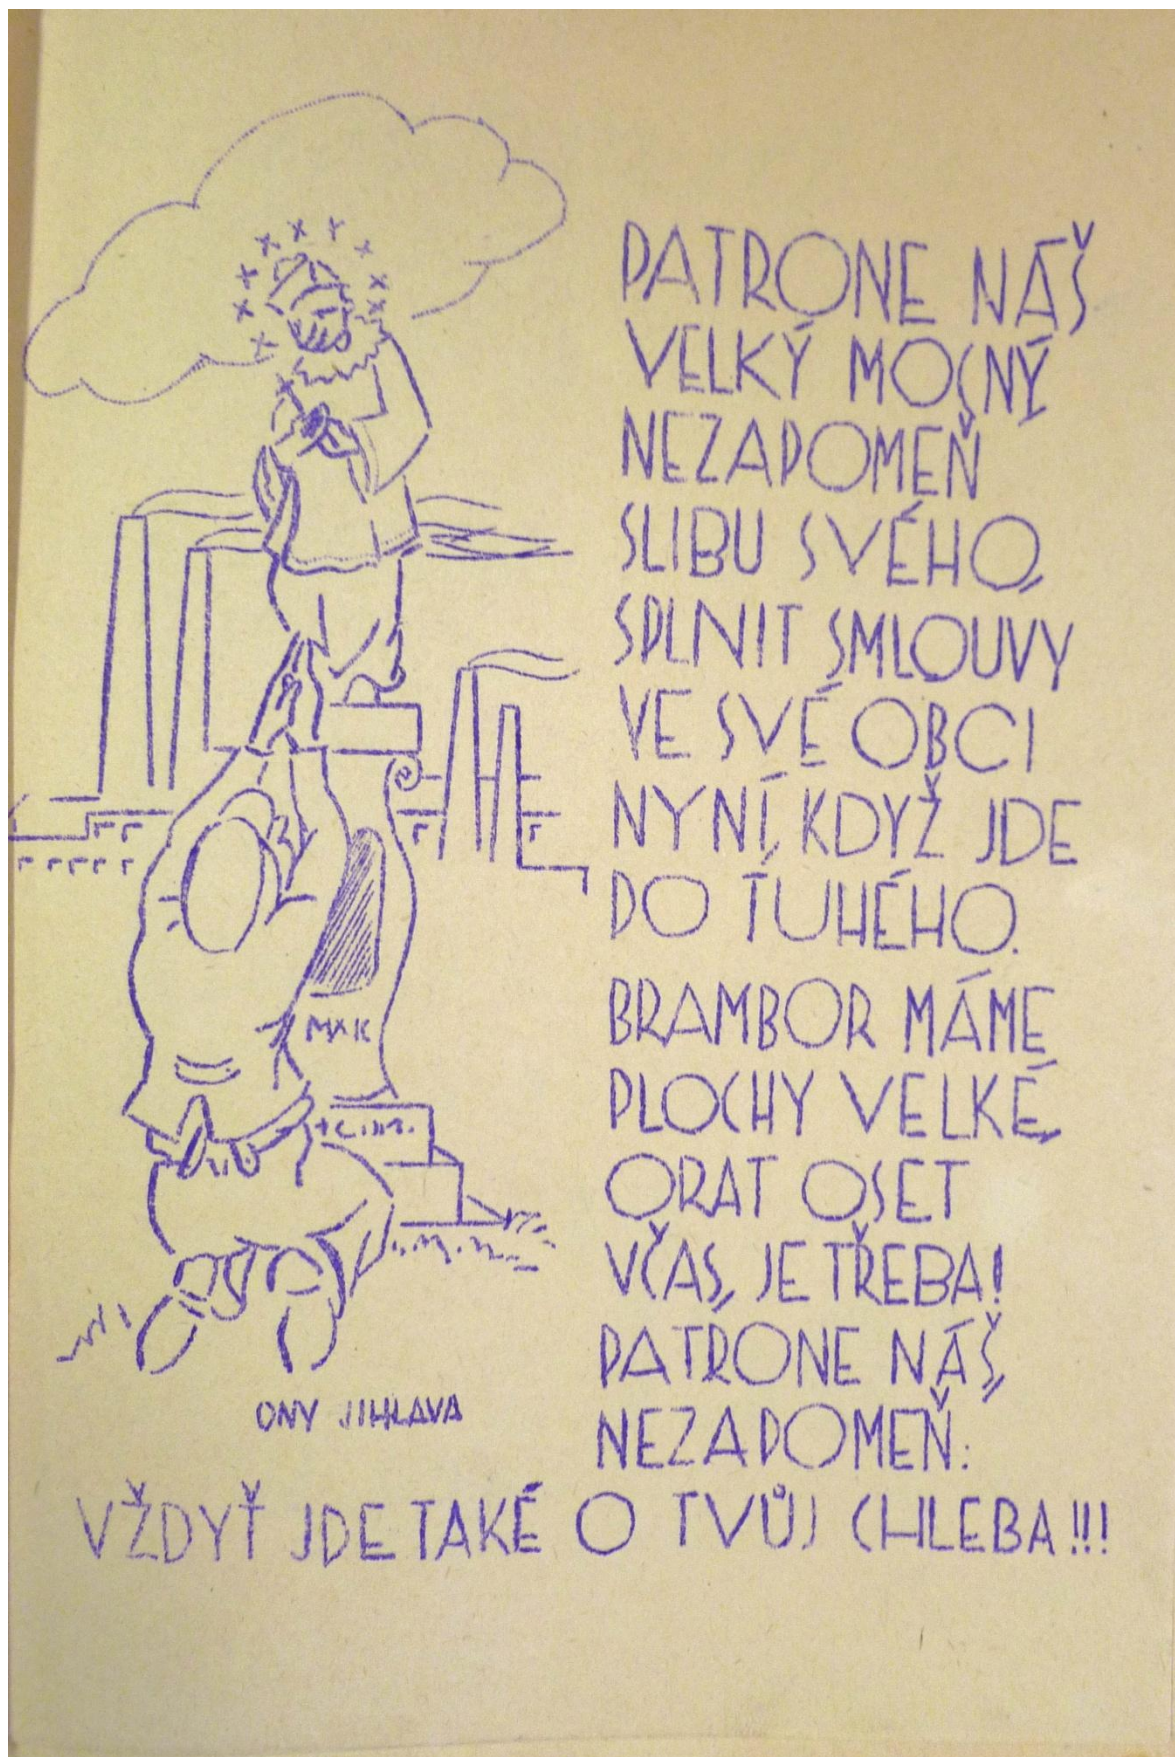 PATRONE NÁŠ
VELKÝ MOCNÝ
NEZAPOMEŇ
SLIBU SVÉHO,
SPLNIT SMLOUVY
VE SVÉ OBCI
NYNÍ, KDYŽ JDE
DO TUHÉHO.
BRAMBOR MÁME
PLOCHY VELKÉ,
ORAT OSET
VČAS, JE TŘEBA!
PATRONE NÁŠ,
NEZAPOMEŇ:
VŽDYŤ JDE TAKÉ O TVŮJ CHLEBA!!!
ONY JIHLAVA